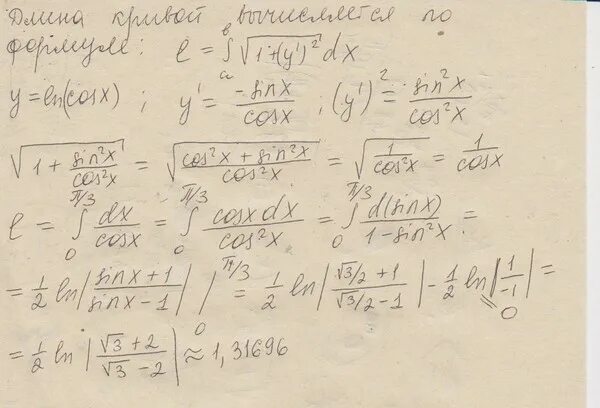 Длина кривой вычисляется по
формуле: l = ∫_a^b √(1+(y')²) dx
y = ln(cosx) ; y' = -sinx/cosx ; (y')² = sin²x/cos²x
√(1 + sin²x/cos²x) = √((cos²x + sin²x)/cos²x) = √(1/cos²x) = 1/cosx
l = ∫_0^{π/3} dx/cosx = ∫_0^{π/3} cosx dx/cos²x = ∫_0^{π/3} d(sinx)/(1-sin²x) =
= 1/2 ln|(sinx+1)/(sinx-1)| |_0^{π/3} = 1/2 ln|(√3/2+1)/(√3/2-1)| - 1/2 ln|1/-1| = 0
= 1/2 ln|(√3+2)/(√3-2)| ≈ 1,31696